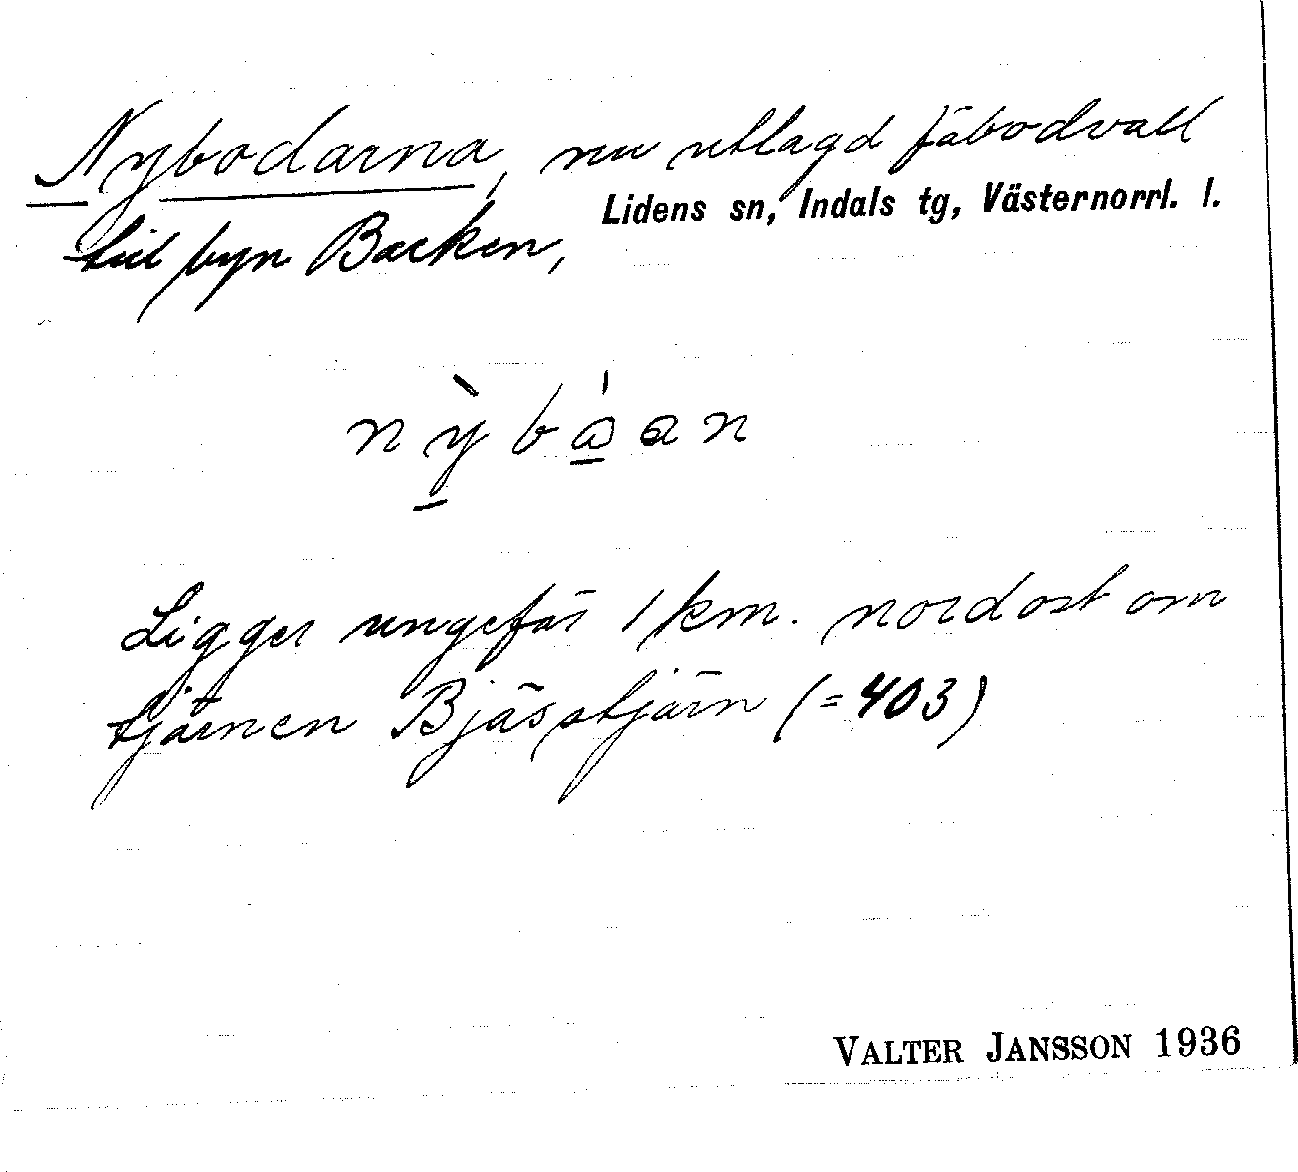 Nybodarna, nu utlagd fäbodvall
Lidens sn, Indals tg, Västernorrl. l.
till byn Backen,
nỳbáan
Ligger ungefär 1 km. nordost om
tjärnen Bjässtjärn (=403)
VALTER JANSSON 1936